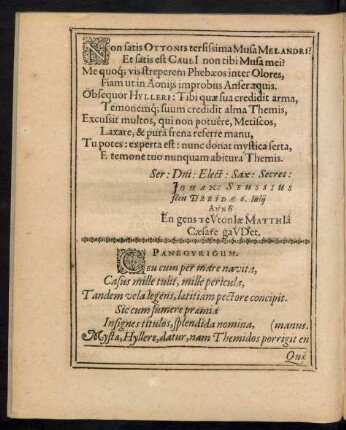 Non satis OTTONIS tersissima Musa MELANDRI?
Et satis est CAULI non tibi Musa mei?
Me quoq; vis strepere in Phebæos inter Olores,
Fiam ut in Aonijs improbus Anser aquis.
Obsequor HYLLERE: Tibi quæ sua credidit arma,
Temonemq; suum credidit alma Themis,
Excussit multos, qui non potuêre, Metiscos,
Laxare, & pura frena referre manu,
Tu potes: experta est: nunc donat mystica serta,
E temone tuo nunquam abitura Themis.
Ser: Dni: Elect: Sax: Secret:
JOHAN: SEUSSIUS
fecit DRESDÆ 6. Iulij
Anno
En gens teVtonIæ MATTHIâ
Cæsare gaVDet.
PANEGYRICUM.
Ceu cum per mare navita,
Casus mille tulit, mille pericula,
Tandem vela legens, lætitiam pectore concipit.
Sic cum sumere præmia
Insignes titulos, splendida nomina, (manus.
Mysta, Hyllere, datur, nam Themidos porrigit en
Quæ